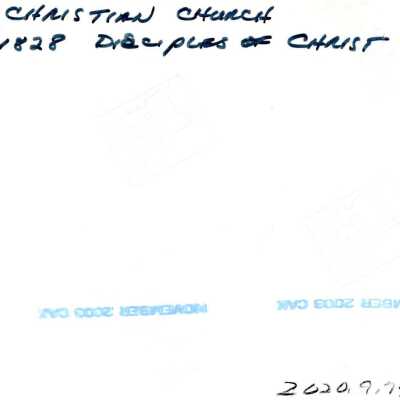 CHRISTIAN CHURCH
1828 DISCIPLES OF CHRIST
NOVEMBER 2003 CAK
NOVEMBER 2003 CAK
2020.9.